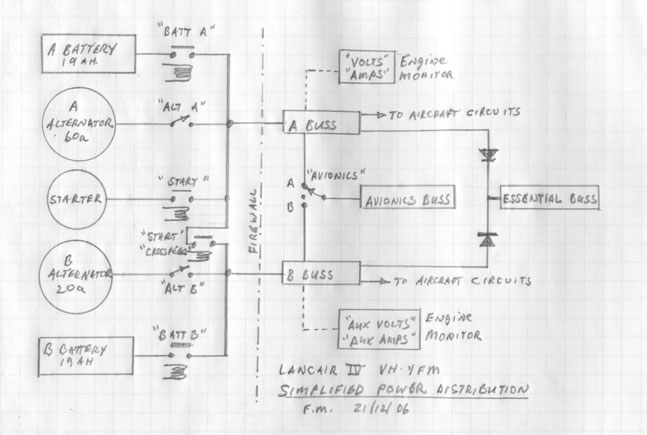 "BATT A"
A BATTERY
19 AH.
"VOLTS"
"AMPS"
ENGINE
MONITOR
A
ALTERNATOR
60a
"ALT A"
A BUSS
TO AIRCRAFT CIRCUITS
STARTER
"START"
FIREWALL
A
B
"AVIONICS"
AVIONICS BUSS
ESSENTIAL BUSS
"START"
"CROSSFEED"
B
ALTERNATOR
20a
"ALT B"
B BUSS
TO AIRCRAFT CIRCUITS
"BATT B"
B BATTERY
19 AH
"AUX VOLTS"
"AUX AMPS"
ENGINE
MONITOR
LANCAIR IV VH-YFM
SIMPLIFIED POWER DISTRIBUTION
F.M. 21/12/06